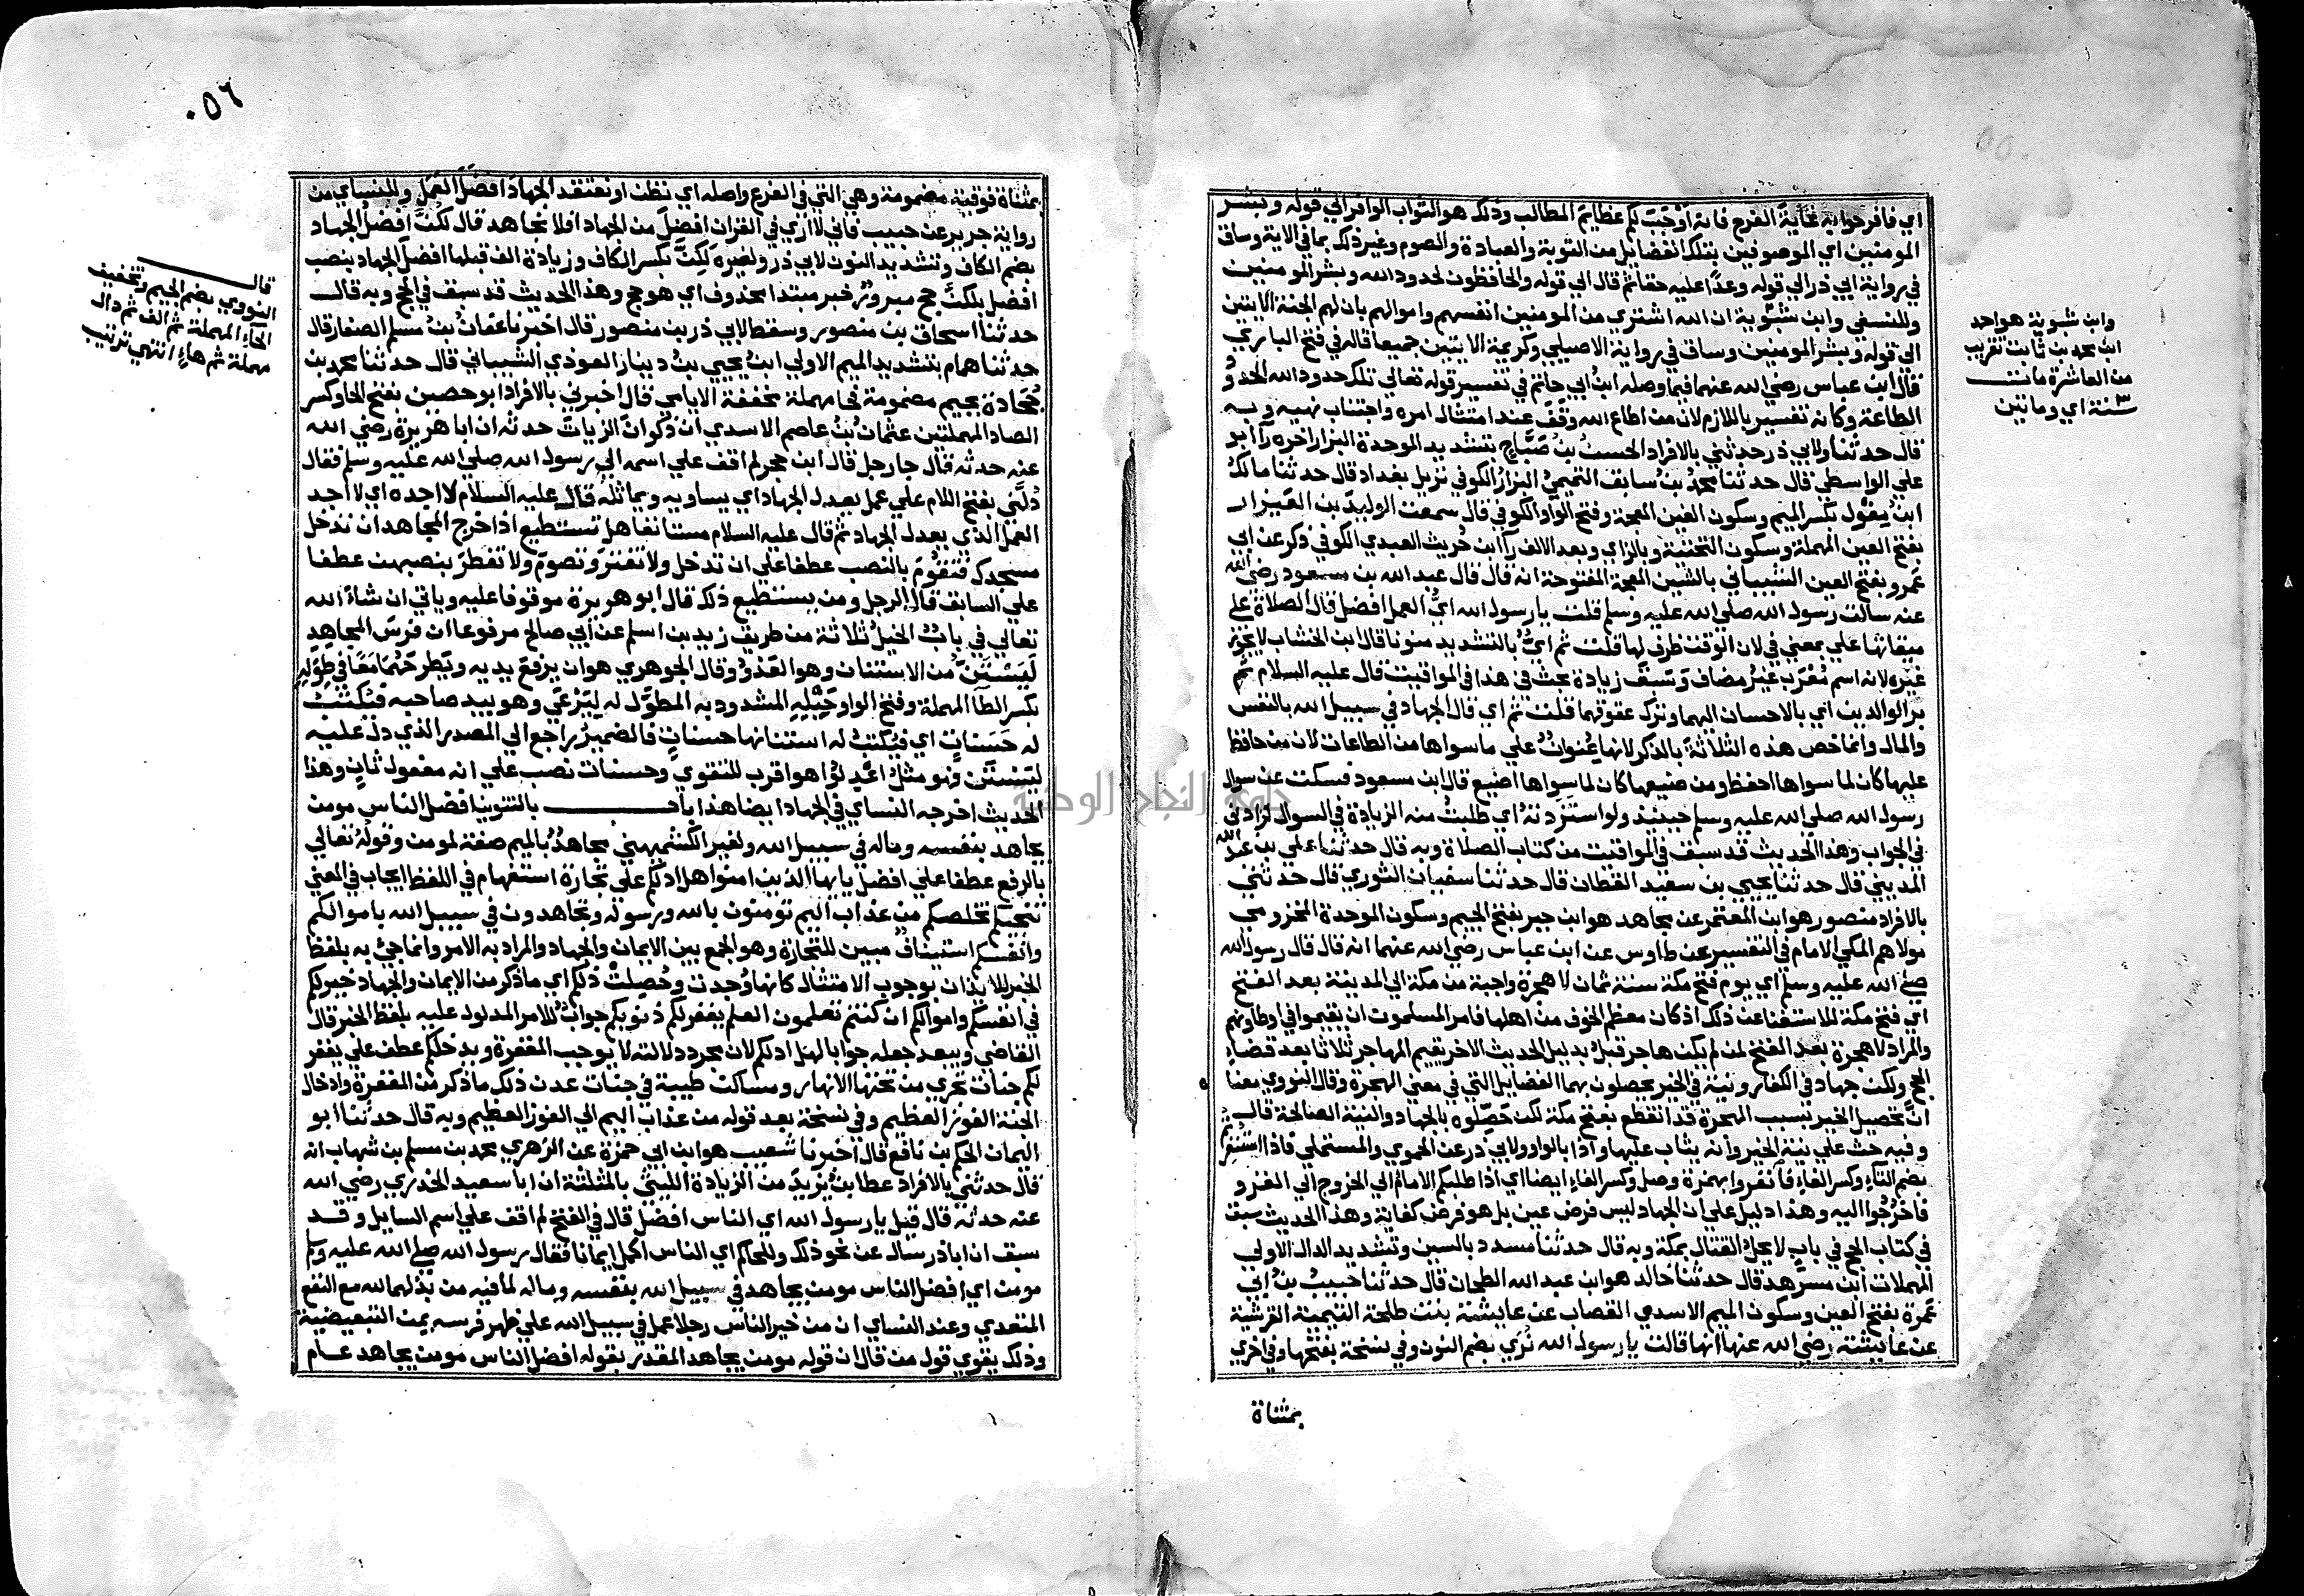 اي فافرحوا به غاية الفرح فانه اوجب لكم عظايم المطالب وذلك هو الثواب الوافر الي قوله وبشر
المومنين اي الموصوفين بتلك الفضايل من التوبة والعبادة والصوم وغير ذلك بما في الاية وساق
في رواية ابي ذر الي قوله وعدا عليه حقا ثم قال الي قوله والحافظون لحدود الله وبشر المومنين
وللنسفي وابن شبوية ان الله اشتري من المومنين انفسهم واموالهم بان لهم الجنة الايتين
الي قوله وبشر المومنين وساق في رواية الاصيلي وكريمة الايتين جميعا قاله في فتح الباري
قال ابن عباس رضي الله عنهما فيما وصله ابن ابي حاتم في تفسير قوله تعالي تلك حدود الله الحدود
الطاعة وكانه تفسير باللازم لان من اطاع الله وقف عند امتثال امره واجتناب نهيه وبه
قال حدثنا ولابي ذر حدثني بالافراد الحسن بن صباح بتشديد الموحدة البزار اخره رآ ابو
علي الواسطي قال حدثنا محمد بن سابق التميمي البزاز الكوفي نزيل بغداد قال حدثنا مالك
ابن مغول بكسر الميم وسكون الغين المعجمة وفتح الواو الكوفي قال سمعت الوليد بن العيزار
بفتح العين المهملة وسكون التحتية وبالزاي وبعد الالف رآ ابن حريث العبدي الكوفي ذكر عن ابي
عمرو بفتح العين الشيباني بالشين المعجمة المفتوحة انه قال قال عبد الله بن مسعود رضي الله
عنه سالت رسول الله صلي الله عليه وسلم قلت يا رسول الله اي العمل افضل قال الصلاة علي
ميقاتها علي بمعني في لان الوقت ظرف لها قلت ثم اي بالتشديد منونا قال ابن الخشاب لا يجوز
غيره لانه اسم معرب غير مضاف وسبق زيادة بحث في هذا في المواقيت قال عليه السلام ثم
بر الوالدين اي بالاحسان اليهما وترك عقوقهما قلت ثم اي قال الجهاد في سبيل الله بالنفس
والمال وانما خص هذه الثلاثة بالذكر لانها عنوان علي ما سواها من الطاعات لان من حافظ
عليها كان لما سواها احفظ ومن ضيعها كان لما سواها اضيع قال ابن مسعود فسكت عن سوال
رسول الله صلي الله عليه وسلم حينيذ ولو استزدته اي طلبت منه الزيادة في السوال لزادني
في الجواب وهذا الحديث قد سبق في المواقيت من كتاب الصلاة وبه قال حدثنا علي بن عبد الله
المديني قال حدثنا يحيي بن سعيد القطان قال حدثنا سفيان الثوري قال حدثني
بالافراد منصور هو ابن المعتمر عن مجاهد هو ابن جبر بفتح الجيم وسكون الموحدة المخزومي
مولاهم المكي الامام في التفسير عن طاوس عن ابن عباس رضي الله عنهما انه قال قال رسول الله
صلي الله عليه وسلم اي يوم فتح مكة سنة ثمان لا هجرة واجبة من مكة الي المدينة بعد الفتح
اي فتح مكة للاستغنا عن ذلك اذ كان معظم الخوف من اهلها فامر المسلمون ان يقيموا في اوطانهم
والمراد لا هجرة بعد الفتح لمن لم يكن هاجر قبل بدليل الحديث الاخر يقيم المهاجر ثلاثا بعد قضاء
الحج ولكن جهاد في الكفار ونية في الخير يحصلون بهما الفضايل التي في معني الهجرة وقال النووي معنا
ان تحصيل الخير بسبب الهجرة قد انقطع بفتح مكة لكن حصلوه بالجهاد والنية الصالحة قال
وفيه حث علي نية الخير وانه يثاب عليها واذا بالواو ولابي ذر عن الحموي والمستملي فاذا استنفرتم
بضم التآء وكسر الفاء فانفروا بهمزة وصل وكسر الفاء ايضا اي اذا طلبكم الامام الي الخروج الي الغزو
فاخرجوا اليه وهذا دليل علي ان الجهاد ليس فرض عين بل هو فرض كفاية وهذا الحديث سبق
في كتاب الحج في باب لا يحل القتال بمكة وبه قال حدثنا مسدد بالسين وتشديد الدال الاولي
المهملات ابن مسرهد قال حدثنا خالد هو ابن عبد الله الطحان قال حدثنا حبيب بن ابي
عمرة بفتح العين وسكون الميم الاسدي القصاب عن عايشة بنت طلحة التيمية القرشية
عن عايشة رضي الله عنها انها قالت يا رسول الله نري بضم النون وفي نسخة بفتحها وفي اخري
بمثناة
وابن شبوية هو احد
ابن محمد بن ثابت تقريب
من العاشرة مات
سنة ٣ اي ومائتين
٠٥٦
بمثناة فوقية مضمومة وهي التي في الفرع واصله اي نظن او نعتقد الجهاد افضل العمل وللنساي من
رواية جرير عن حبيب فاني لا اري في القران افضل من الجهاد افلا نجاهد قال لكن افضل الجهاد
بضم الكاف وتشديد النون لابي ذر ولغيره لكن بكسر الكاف وزيادة الف قبلها افضل الجهاد بنصب
افضل بلكن حج مبرور خبر مبتدا محذوف اي هو حج وهذا الحديث قد سبق في الحج وبه قال
حدثنا اسحاق بن منصور وسقط لابي ذر بن منصور قال اخبرنا عفان بن مسلم الصفار قال
حدثنا همام بتشديد الميم الاولي ابن يحيي بن دينار العوذي الشيباني قال حدثنا محمد بن
جحادة بجيم مضمومة فحا مهملة مخففة الايامي قال اخبرني بالافراد ابو حصين بفتح الحا وكسر
الصاد المهملتين عثمان بن عاصم الاسدي ان ذكوان الزيات حدثه ان ابا هريرة رضي الله
عنه حدثه قال جا رجل قال ابن حجر لم اقف علي اسمه الي رسول الله صلي الله عليه وسلم فقال
دلني بفتح اللام علي عمل يعدل الجهاد اي يساويه ويماثله قال عليه السلام لا اجده اي لا اجد
العمل الذي يعدل الجهاد ثم قال عليه السلام مستانفا هل تستطيع اذا خرج المجاهد ان تدخل
مسجدك فتقوم بالنصب عطفا علي ان تدخل ولا تفتر وتصوم ولا تفطر بنصبهن عطفا
علي السابق قال الرجل ومن يستطيع ذلك قال ابو هريرة موقوفا عليه وياتي ان شاء الله
تعالي في باب الخيل ثلاثة من طريق زيد بن اسلم عن ابي صالح مرفوعا ان فرس المجاهد
ليستن من الاستنان وهو العدو وقال الجوهري هو ان يرفع يديه ويطرحهما معا في طوله
بكسر الطآ المهملة وفتح الواو حبله المشدود به المطول له ليرعي وهو بيد صاحبه فيكتب
له حسنات اي فيكتب له استنانها حسنات فالضمير راجع الي المصدر الذي دل عليه
ليستن فهو مثل اعدلوا هو اقرب للتقوي وحسنات نصب علي انه مفعول ثان وهذا
الحديث اخرجه النساي في الجهاد ايضا هذا باب بالتنوين افضل الناس مومن
يجاهد بنفسه وماله في سبيل الله ولغير الكشميهني مجاهد بالميم صفة لمومن وقوله تعالي
بالرفع عطفا علي افضل يايها الذين امنوا هل ادلكم علي تجارة استفهام في اللفظ ايجاب في المعني
تنجيكم تخلصكم من عذاب اليم تومنون بالله ورسوله وتجاهدون في سبيل الله باموالكم
وانفسكم استيناف مبين للتجارة وهو الجمع بين الايمان والجهاد والمراد به الامر وانما جئ به بلفظ
الخبر للايذان بوجوب الامتثال كانها وجدت وحصلت ذلكم اي ما ذكر من الايمان والجهاد خير لكم
في انفسكم واموالكم ان كنتم تعلمون العلم يغفر لكم ذنوبكم جواب للامر المدلول عليه بلفظ الخبر قال
القاضي ويبعد جعله جوابا لهل ادلكم لان مجرد دلالته لا يوجب المغفرة ويدخلكم عطف علي يغفر
لكم جنات تجري من تحتها الانهار ومساكن طيبة في جنات عدن ذلك ما ذكر من المغفرة وادخال
الجنة الفوز العظيم وفي نسخة بعد قوله من عذاب اليم الي الفوز العظيم وبه قال حدثنا ابو
اليمان الحكم بن نافع قال اخبرنا شعيب هو ابن ابي حمزة عن الزهري محمد بن مسلم بن شهاب انه
قال حدثني بالافراد عطا بن يزيد من الزيادة الليثي بالمثلثة ان ابا سعيد الخدري رضي الله
عنه حدثه قال قيل يا رسول الله اي الناس افضل قال في الفتح لم اقف علي اسم السايل وقد
سبق ان اباذر سال عن نحو ذلك وللحاكم اي الناس اكمل ايمانا فقال رسول الله صلي الله عليه وسلم
مومن اي افضل الناس مومن يجاهد في سبيل الله بنفسه وماله لما فيه من بذلهما لله مع النفع
المتعدي وعند النساي ان من خير الناس رجلا عمل في سبيل الله علي ظهر فرسه بمن التبعيضية
وذلك يقوي قول من قال ان قوله مومن يجاهد المقدر بقوله افضل الناس مومن يجاهد عام
قال
النووي بضم الجيم وتخفيف
الحآء المهملة ثم الف ثم دال
مهملة ثم هاء انتهي ترتيب
جامعة النجاح الوطنية